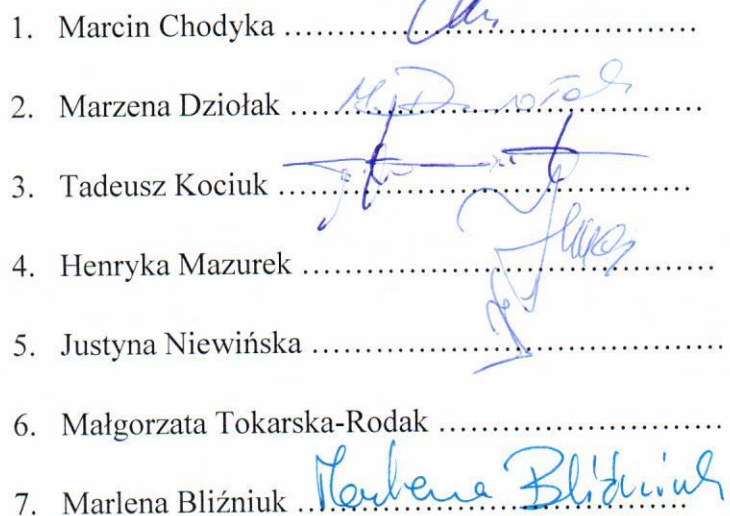 1. Marcin Chodyka ........................................
2. Marzena Dziołak ........................................ M. Dziołak
3. Tadeusz Kociuk ........................................
4. Henryka Mazurek ........................................
5. Justyna Niewińska ........................................
6. Małgorzata Tokarska-Rodak ............................
7. Marlena Bliźniuk ........................................ Marlena Bliźniuk